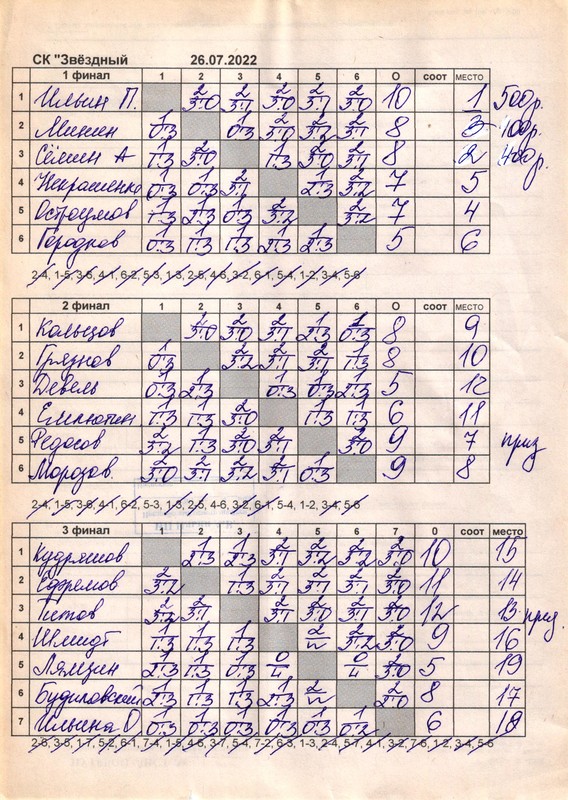 СК "Звёздный 26.07.2022
1 финал 1 2 3 4 5 6 О соот место
1 Ильин П. 2 3:0 2 3:1 2 3:0 2 3:1 2 3:0 10 1 500р.
2 Минин 1 0:3 1 0:3 2 3:0 2 3:2 2 3:1 8 3 400р.
3 Сёмин А 1 1:3 2 3:0 1 1:3 2 3:0 2 3:1 8 2 400р.
4 Некрашенко 1 0:3 1 0:3 2 3:1 1 2:3 2 3:2 7 5
5 Остоумов 1 1:3 1 2:3 1 0:3 2 3:2 2 3:2 7 4
6 Городнов 1 0:3 1 1:3 1 1:3 1 2:3 1 2:3 5 6
2-4, 1-5, 3-6, 4-1, 6-2, 5-3, 1-3, 2-5, 4-6, 3-2, 6-1, 5-4, 1-2, 3-4, 5-6
2 финал 1 2 3 4 5 6 О соот место
1 Кольцов 2 3:0 2 3:0 2 3:1 1 2:3 1 0:3 8 9
2 Грязнов 1 0:3 2 3:2 2 3:1 2 3:1 1 1:3 8 10
3 Девель 1 0:3 1 2:3 1 0:3 1 0:3 1 2:3 5 12
4 1 1:3 1 1:3 2 3:0 1 1:3 1 1:3 6 11
5 Федосов 2 3:2 1 1:3 2 3:0 2 3:1 2 3:0 9 7 приз
6 Морозов 2 3:0 2 3:1 2 3:2 2 3:1 1 0:3 9 8
2-4, 1-5, 3-6, 4-1, 6-2, 5-3, 1-3, 2-5, 4-6, 3-2, 6-1, 5-4, 1-2, 3-4, 5-6
3 финал 1 2 3 4 5 6 7 0 соот место
1 Кудряшов 1 2:3 1 2:3 2 3:1 2 3:2 2 3:2 2 3:0 10 15
2 Ефремов 2 3:2 1 1:3 2 3:1 2 3:1 2 3:1 2 3:0 11 14
3 Титов 2 3:2 2 3:1 2 3:1 2 3:0 2 3:1 2 3:0 12 13 приз.
4 Шмидт 1 1:3 1 1:3 1 1:3 2 2 3:2 2 3:0 9 16
5 Лямзин 1 2:3 1 1:3 1 0:3 0 0 2 3:0 5 19
6 Будиловский 1 2:3 1 1:3 1 1:3 1 2:3 2 2 2:0 8 17
7 Ильина О 1 0:3 1 0:3 1 0:3 1 0:3 1 0:3 1 0:2 6 18